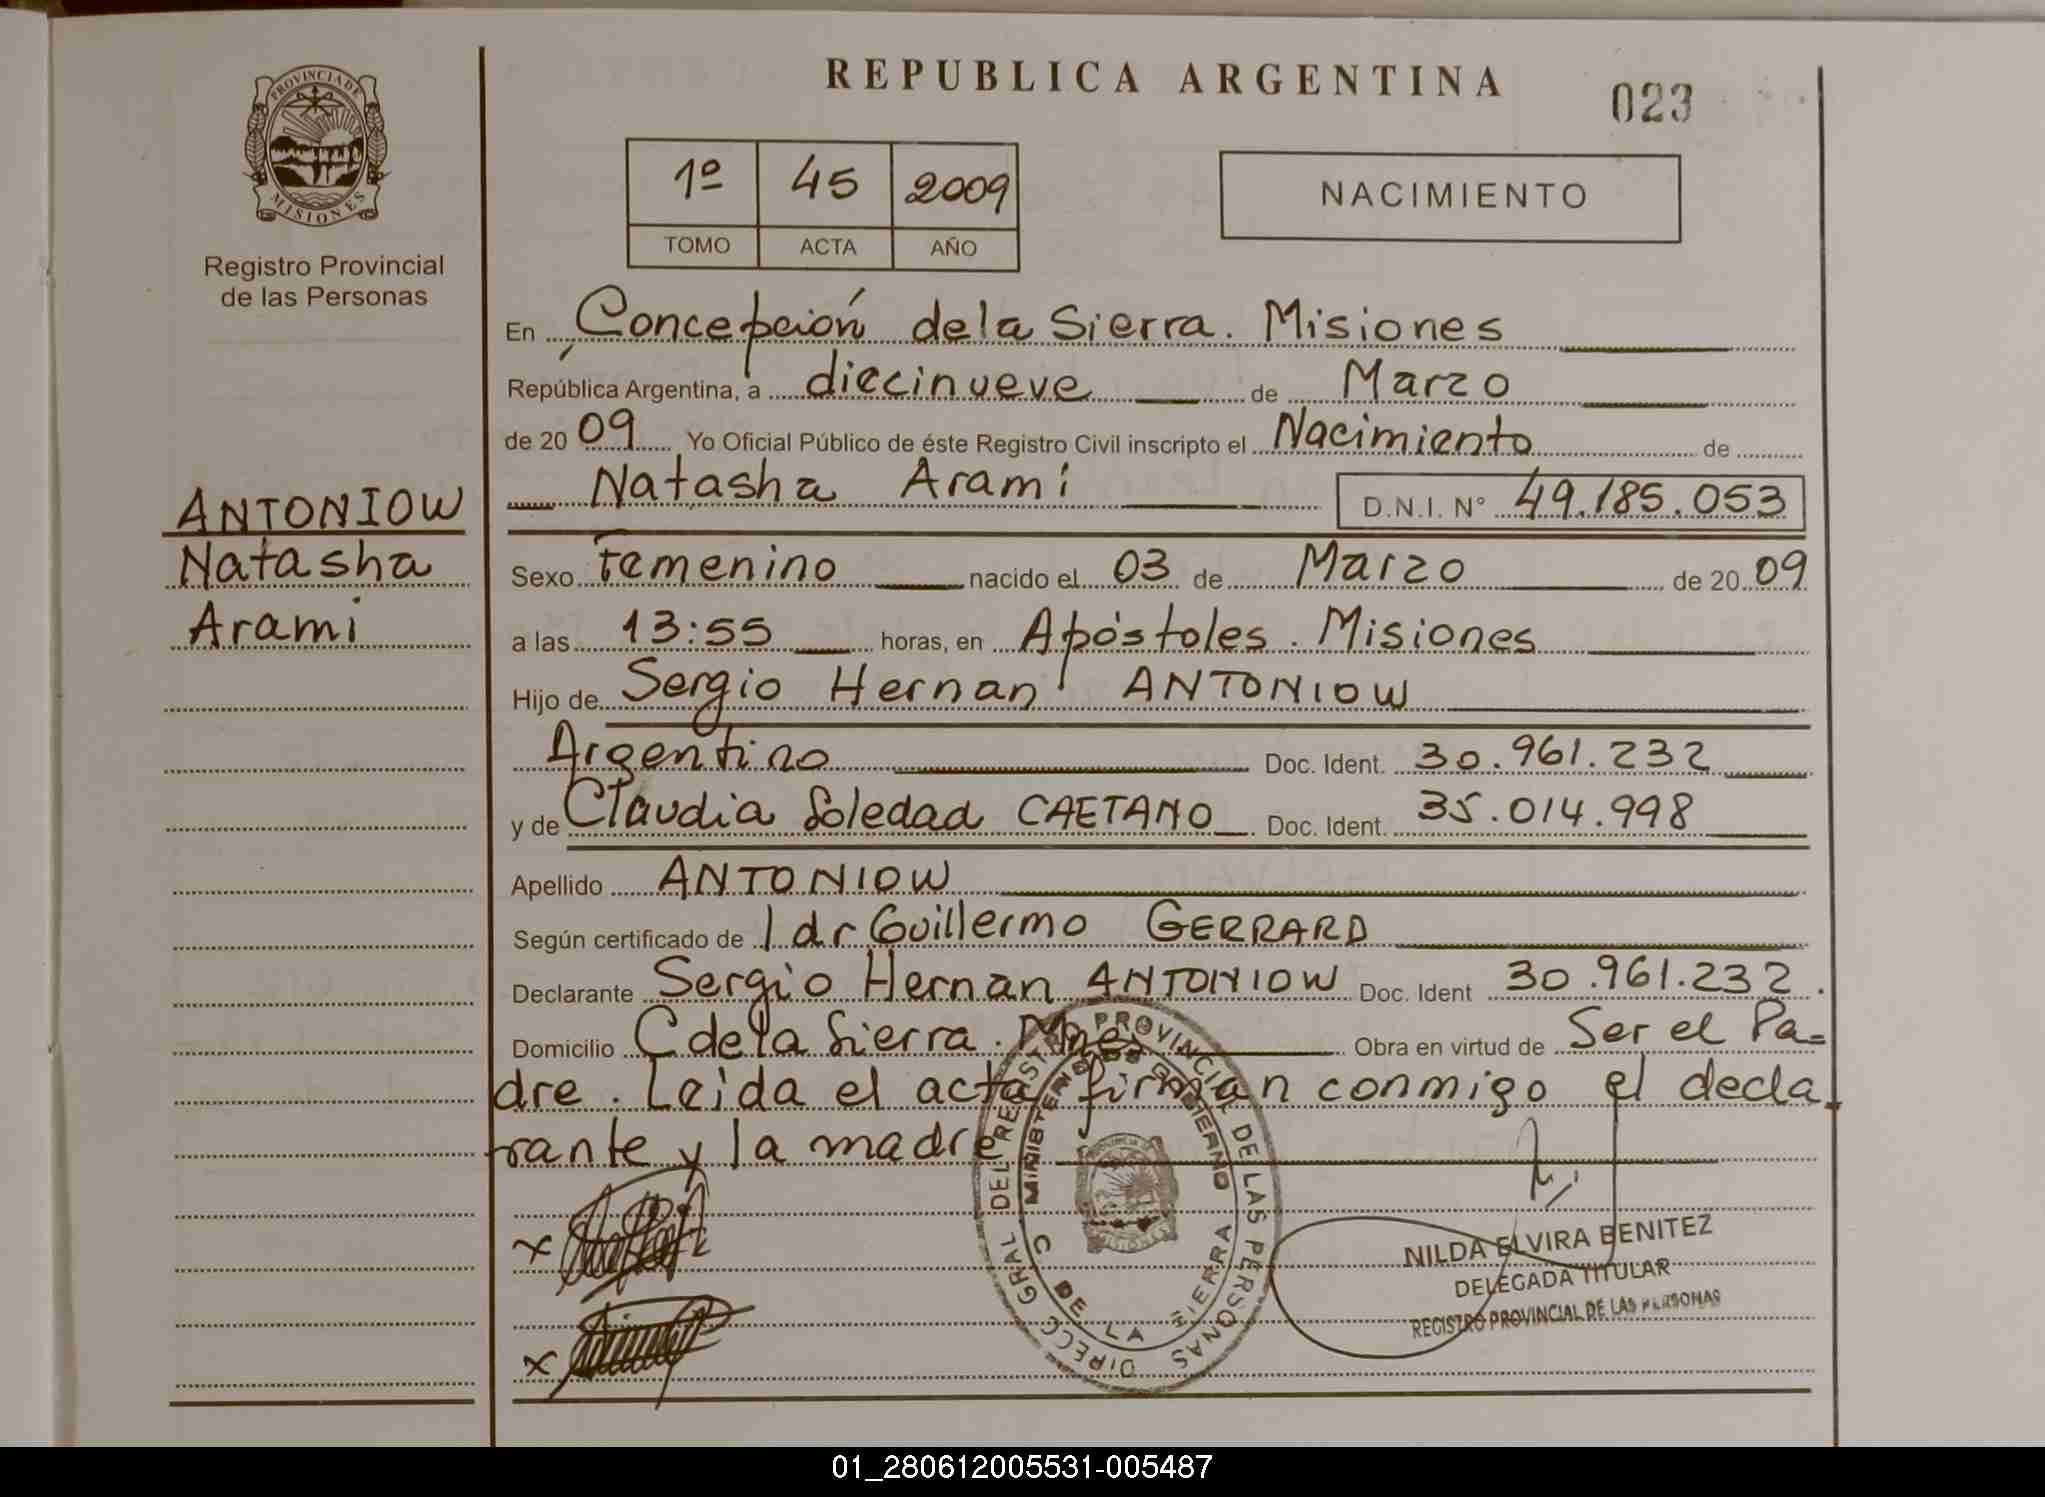 REPUBLICA ARGENTINA
023
PROVINCIA DE
MISIONES
Registro Provincial
de las Personas
1º 45 2009
TOMO ACTA AÑO
NACIMIENTO
En Concepción de la Sierra. Misiones
República Argentina, a diecinueve de Marzo
de 2009 Yo Oficial Público de éste Registro Civil inscripto el Nacimiento de
Natasha Arami D.N.I. N° 49.185.053
ANTONIOW
Natasha
Arami
Sexo Femenino nacido el 03 de Marzo de 2009
a las 13:55 horas, en Apóstoles. Misiones
Hijo de Sergio Hernan ANTONIOW
Argentino Doc. Ident. 30.961.232
y de Claudia Soledad CAETANO Doc. Ident. 35.014.998
Apellido ANTONIOW
Según certificado de l dr Guillermo GERRARD
Declarante Sergio Hernan ANTONIOW Doc. Ident 30.961.232.
Domicilio C de la Sierra. Mnes Obra en virtud de Ser el Pa=
dre. Leida el acta firman conmigo el decla
rante y la madre
DIRECC GRAL DEL REGISTRO PROVINCIAL DE LAS PERSONAS
MINISTERIO DE GOBIERNO
C. DE LA SIERRA
x
x
NILDA ELVIRA BENITEZ
DELEGADA TITULAR
REGISTRO PROVINCIAL DE LAS PERSONAS
01_280612005531-005487